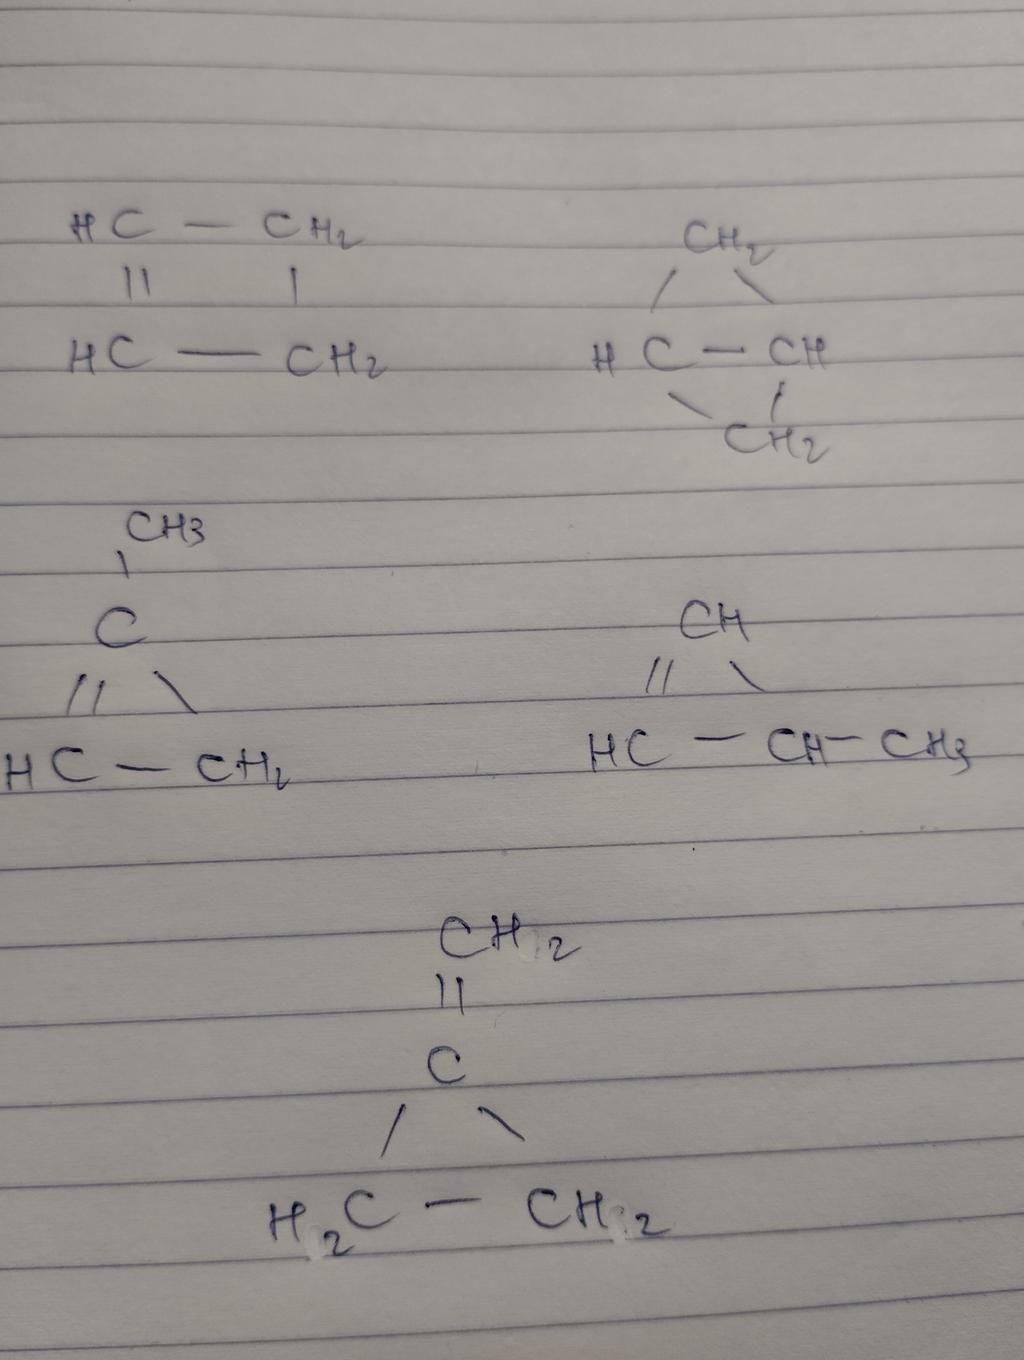 HC — CH₂ CH₂
|| | / \
HC — CH₂ HC — CH
\ /
CH₂
CH3
|
C CH
// \ // \
HC — CH₂ HC — CH — CH₃
CH₂
||
C
/ \
H₂C — CH₂